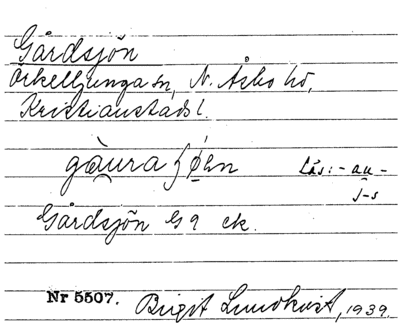 Gårdsjön
Örkelljunga sn, N. Åsbo hd,
Kristianstads l.
gàuraʃǿhn Läs: - au -
ʃ-s
Gårdsjön G 9 ek.
Nr 5507. Birgit Lundkvist, 1939.